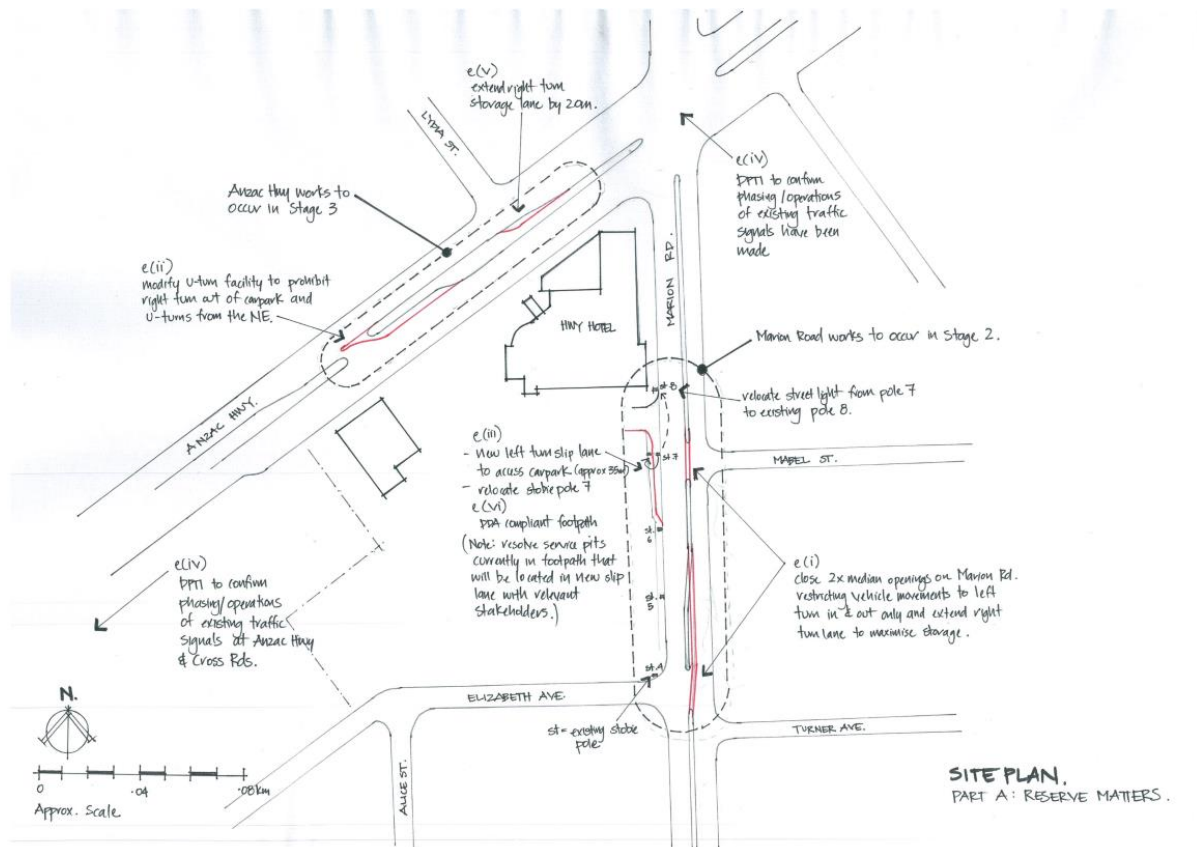 e(v)
extend right turn
storage lane by 20m.
LYDIA ST.
Anzac Hwy works to
occur in Stage 3
e(iv)
DPTI to confirm
phasing/operations
of existing traffic
signals have been
made
e(ii)
modify u-turn facility to prohibit
right turn out of carpark and
u-turns from the NE.
MARION RD.
HWY HOTEL
Marion Road works to occur in Stage 2.
st.8
relocate street light from pole 7
to existing pole 8.
ANZAC HWY.
e(iii)
- new left turn slip lane
to access carpark (approx 35m)
- relocate stobie pole 7
st.7
MABEL ST.
e(vi)
DDA compliant footpath
(Note: resolve service pits
currently in footpath that
will be located in new slip
lane with relevant
stakeholders.)
st.
6
st.
5
e(i)
close 2x median openings on Marion Rd.
restricting vehicle movements to left
turn in & out only and extend right
turn lane to maximise storage.
e(iv)
DPTI to confirm
phasing/operations
of existing traffic
signals at Anzac Hwy
& Cross Rds.
st.4
ELIZABETH AVE.
st = existing stobie
pole
TURNER AVE.
ALICE ST.
N.
0 .04 .08km
Approx. Scale
SITE PLAN.
PART A: RESERVE MATTERS.